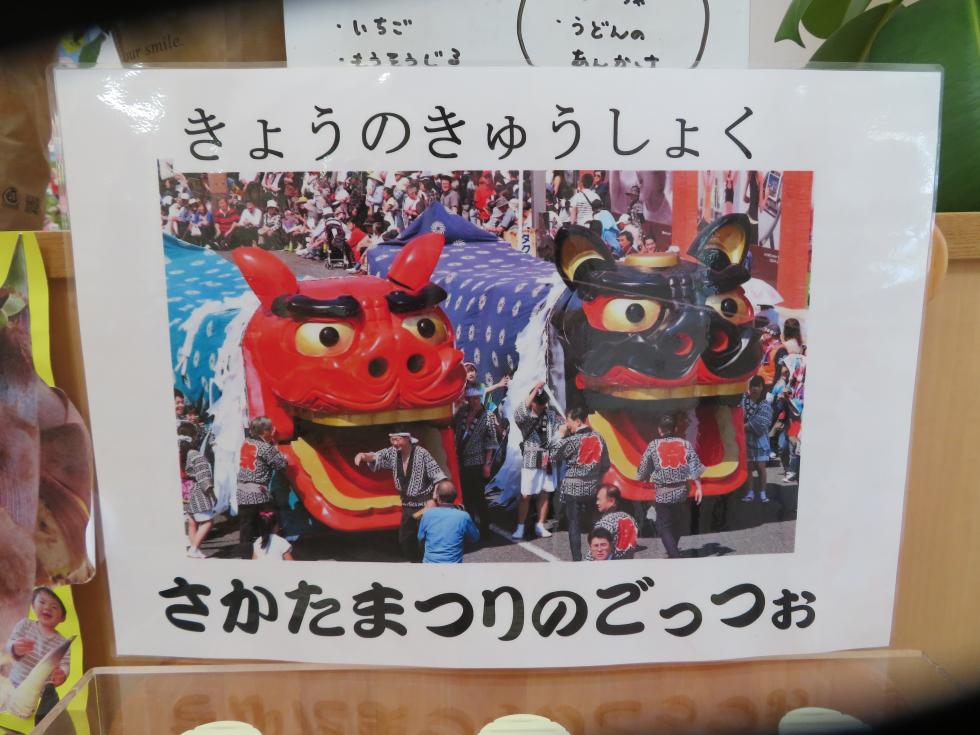 our smile.
・いちご
・もうそうじる
・うどんの
あんかけ
きょうのきゅうしょく
さかたまつりのごっつぉ